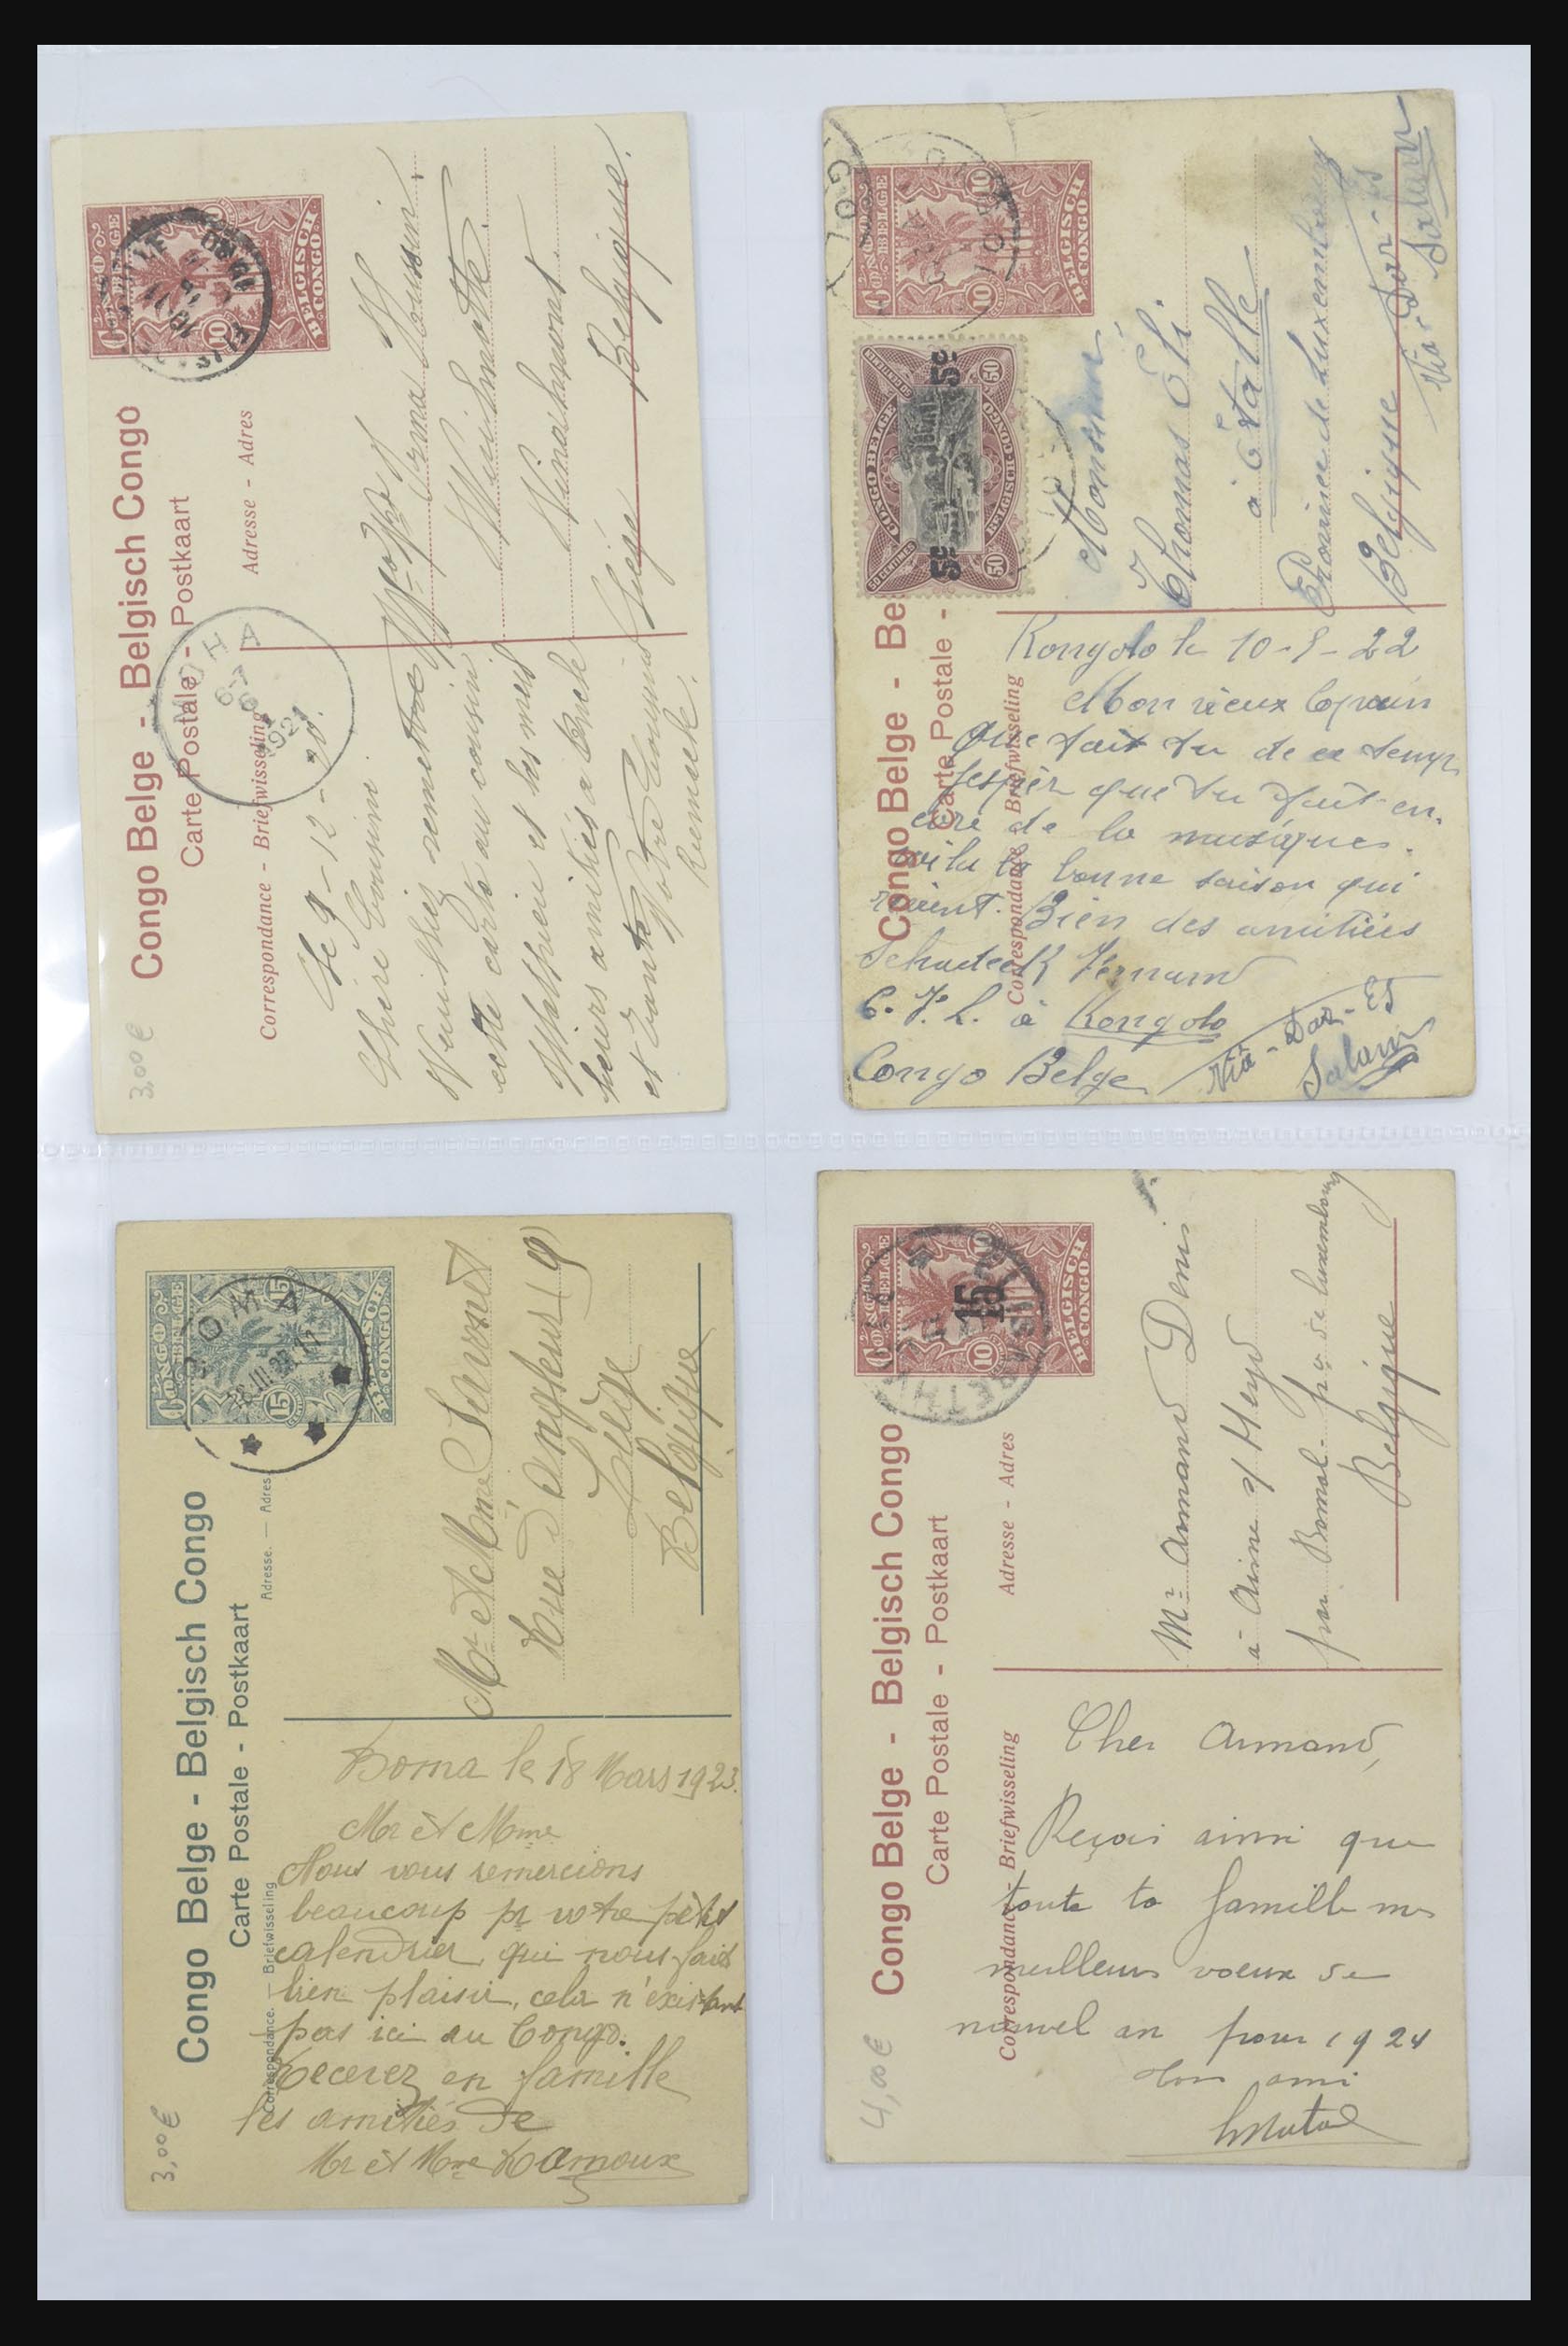 Congo Belge - Belgisch Congo
Carte Postale - Postkaart
Correspondance - Briefwisseling
Adresse - Adres
CONGO BELGE
BELGISCH CONGO
10
HA
1921
Le 9-12-20.
Chère Cousine.
Veuillez remettre
cette carte au cousin
Mathieu et les meil
leurs amitiés à l'oncle
et tante
Votre Cousin
3,00 €
Irma
Liège Belgique.
Congo Belge - Be
Carte Postale -
Correspondance Briefwisseling
CONGO BELGE
BELGISCH CONGO
10
CONGO BELGE
BELGISCH-CONGO
50 CENTIMES
50
5c 5c
Monsieur
Thomas Eli.
à Étalle
Province de Luxembourg
Belgique
Via - Dar-Es
Salam
Kongolo le 10-5-22
Mon vieux Copain
Que fait tu de ce temps
j'espèr que tu fait en-
core de la musique.
voila la bonne saison qui
revient. Bien des amitiées
C. F. L. à Kongolo
Congo Belge
Via - Dar-Es
Salam
Congo Belge - Belgisch Congo
Carte Postale - Postkaart
Correspondance. — Briefwisseling
Adresse. — Adres
CONGO BELGE
BELGISCH CONGO
15
BOMA
Mr et Mme Servais
Rue d'Angleur 19
Liège
Belgique
Boma le 18 Mars 1923.
Mr et Mme
Nous vous remercions
beaucoup pr votre petit
calendrier, qui nous fait
bien plaisir, cela n'existant
pas ici au Congo.
Recevez en famille
les amitiés de
Mr et Mme
3,00 €
Congo Belge - Belgisch Congo
Carte Postale - Postkaart
Correspondance - Briefwisseling
Adresse - Adres
CONGO BELGE
BELGISCH CONGO
10
15
Mr Armand Denis
à Aisne s/ Heyd
par Bomal - prov de Luxembourg
Belgique
Cher Armand,
Reçois ainsi que
toute ta famille mes
meilleurs voeux de
nouvel an pour 1924
Ton ami
4,00 €